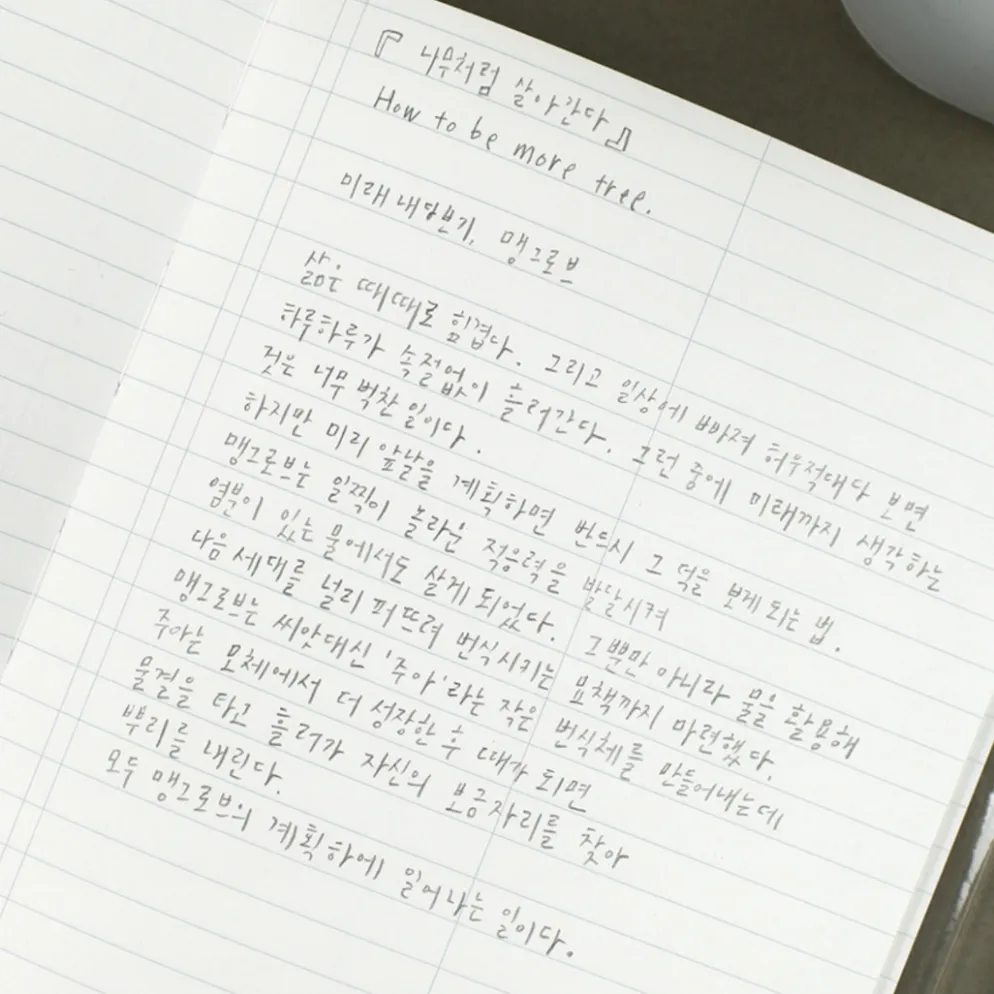 『 나무처럼 살아간다 』
How to be more tree.
미래 내다보기, 맹그로브
삶은 때때로 힘겹다. 그리고 일상에 빠져 허우적대다 보면
하루하루가 속절없이 흘러간다. 그런 중에 미래까지 생각하는
것은 너무 벅찬 일이다.
하지만 미리 앞날을 계획하면 반드시 그 덕을 보게 되는 법.
맹그로브는 일찍이 놀라운 적응력을 발달시켜
염분이 있는 물에서도 살게 되었다. 그뿐만 아니라 물을 활용해
다음 세대를 널리 퍼뜨려 번식시키는 묘책까지 마련했다.
맹그로브는 씨앗대신 '주아'라는 작은 번식체를 만들어내는데
주아는 모체에서 더 성장한 후 때가 되면
물결을 타고 흘러가 자신의 보금자리를 찾아
뿌리를 내린다.
모두 맹그로브의 계획하에 일어나는 일이다.